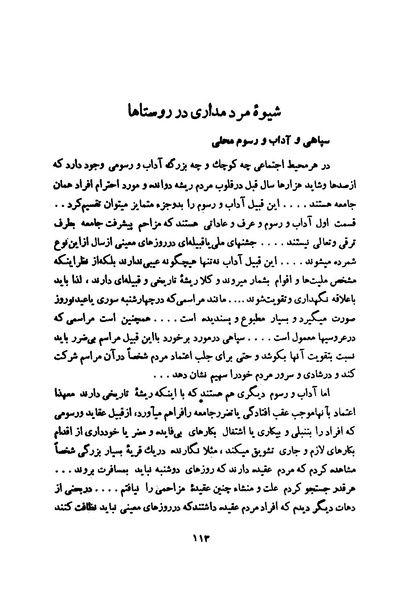 شیوهٔ مردمداری در روستاها
سپاهی و آداب و رسوم محلی
در هر محیط اجتماعی چه کوچك و چه بزرگ آداب و رسومی وجود دارد که
ازصدها وشاید هزارها سال قبل درقلوب مردم ریشه دوانده و مورد احترام افراد همان
جامعه هستند .... این قبیل آداب و رسوم را بدوجزء متمایز میتوان تقسیم کرد..
قسمت اول آداب و رسوم و عرف و عاداتی هستند که مزاحم پیشرفت جامعه بطرف
ترقی وتعالی نیستند .... جشنهای ملی یاقبیله‌ای درروزهای معینی ازسال ازاین نوع
شمرده میشوند .... این قبیل آداب نه‌تنها هیچگونه عیبی ندارند بلکه‌از نظر اینکه
مشخص ملیت‌ها و اقوام بشمار میروند و کلا ریشهٔ تاریخی و قبیله‌ای دارند ، لذا باید
باعلاقه نگهداری وتقویت شوند.... مانند مراسمی که درچهارشنبه سوری یاعیدنوروز
صورت میگیرد و بسیار مطبوع و پسندیده است .... همچنین است مراسمی که
درعروسیها معمول است.... سپاهی درمورد برخورد بااین قبیل مراسم بی‌ضرر باید
نسبت بتقویت آنها بکوشد و حتی برای جلب اعتماد مردم شخصاً درآن مراسم شرکت
کند و درشادی و سرور مردم خودرا سهیم نشان دهد ...
اما آداب و رسوم دیگری هم هستند که با اینکه ریشهٔ تاریخی دارند معهذا
اعتماد بآنها موجب عقب افتادگی یاتضرر جامعه رافراهم میآورد، ازقبیل عقاید ورسومی
که افراد را بتنبلی و بیکاری یا اشتغال بکارهای بی‌فایده و مضر یا خودداری از اقدام
بکارهای لازم و جاری تشویق میکند ، مثلا نگارنده دریك قریهٔ بسیار بزرگی شخصاً
مشاهده کردم که مردم عقیده دارند که روزهای دوشنبه نباید بمسافرت بروند ...
هرقدر جستجو کردم علت و منشاء چنین عقیدهٔ مزاحمی را نیافتم .... دربعضی از
دهات دیگر دیدم که افراد مردم عقیده داشتند که درروزهای معینی نباید نظافت کنند
۱۱۳